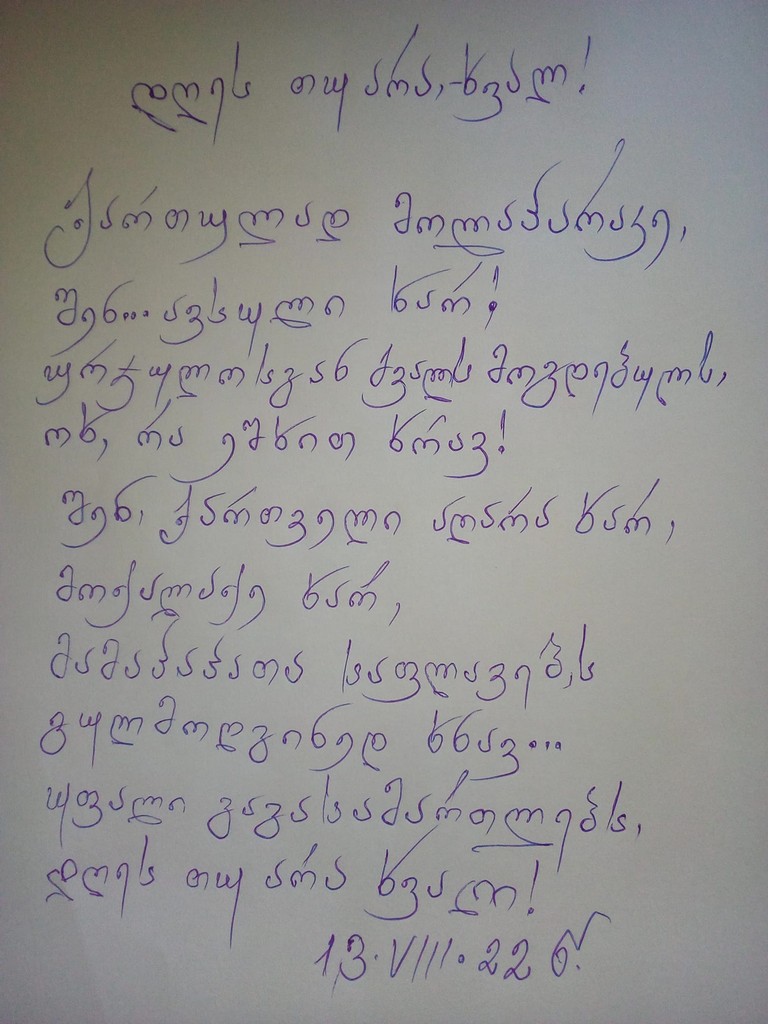 დღეს თუ არა, - ხვალ!
ქართულად მოლაპარაკე,
შენ... ავსული ხარ!
ურჯულოსგან ძვალს მოგდებულს,
ოხ, რა ეშხით ხრავ!
შენ, ქართველი აღარა ხარ,
მოქალაქე ხარ,
მამაპაპათა საფლავებს
გულმოდგინედ ხნავ...
უფალი გაგასამართლებს,
დღეს თუ არა ხვალ!
13. VIII. 22 წ.